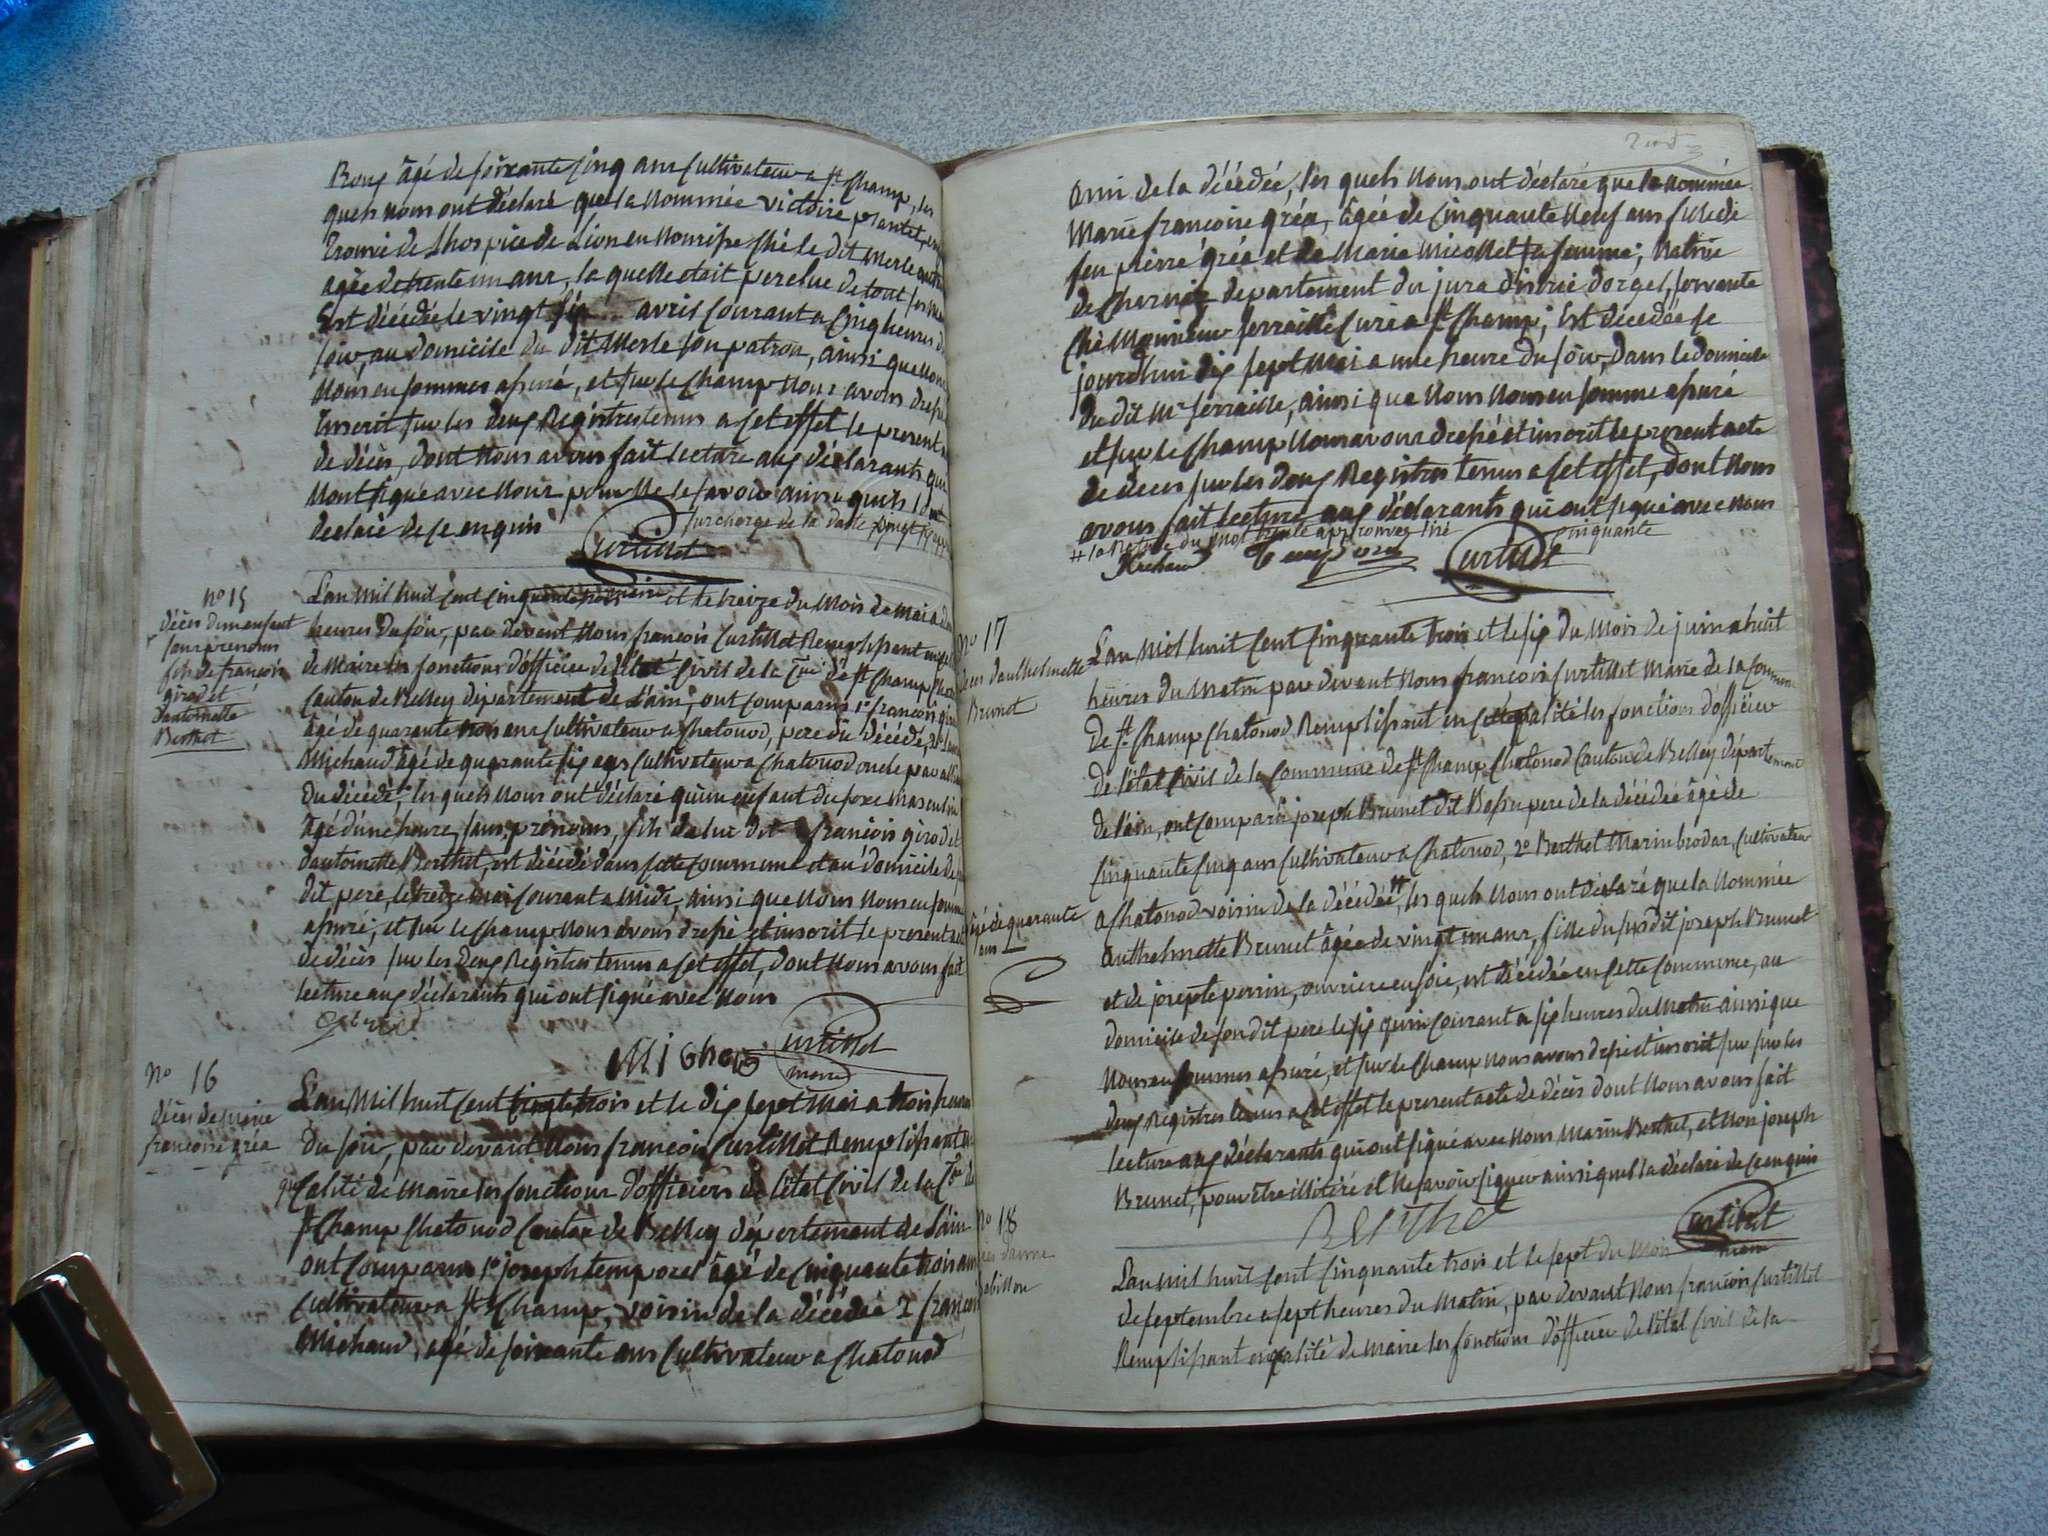 Roux âgé de soixante cinq ans cultivateur a St Champ, les
quels nous ont déclaré que la nommée victoire plantet,
trouvée de Lhospice de Lion en nourisse ché le dit Merle
agée de trente un ans, la quelle était percluse de tout ses
Est décédée le vingt six avril courant a cinq heures du
soir, au domicile du dit Merle son patron, ainsi que nous
nous en sommes assuré, et sur le champ nous avons dressé
inscrit sur les deux Registres tenus a cet effet le present
de décès, dont nous avons fait lecture aux déclarants qui
nont signé avec nous pour ne le savoir ainsi quils l'ont
declaré de ce enquis
surcharge de la date
Curtillet
maire
n° 15
décès dun enfant
sans prenoms
fils de françois
girod et
dantoinette
Berthet
L'an Mil huit cent cinquante trois et le treize du Mois de mai a deux
heures du soir, par devant nous françois Curtillet Remplissant en
de Maire les fonctions d'officier de l'état civil de la Cne de St Champ
Canton de Belley département de L'ain, ont comparus 1° françois girod
âgé de quarante trois ans cultivateur a Chatonod, pere du décédé, 2°
Michaud âgé de quarante six ans cultivateur a Chatonod oncle par
du décédé, les quels nous ont déclaré qu'un enfant du sexe masculin
âgé d'une heure, sans prénoms, fils de lui dit françois girod et
dantoinette Berthet, est décédé dans cette commune et au domicile de
dit pere, le treize mai courant a midi, ainsi que nous nous en sommes
assuré, et sur le champ nous avons dressé et inscrit le present acte
de décès sur les deux Registres tenus a cet effet, dont nous avons fait
lecture aux déclarants qui ont signé avec nous
Curtillet
maire
n° 16
décès de marie
françoise gréa
L'an Mil huit cent cinqte trois et le dix sept Mai a trois heures
du soir, par devant nous françois Curtillet Remplissant en
qualité de Maire les fonctions d'officiers de l'état civil de la Cne de
St Champ Chatonod Canton de Belley département de l'ain
ont comparus 1° joseph temporel âgé de cinquante trois ans
cultivateur a St Champ, voisin de la décédée 2° françois
Michaud, agé de soixante ans cultivateur a Chatonod
ami de la décédée, les quels nous ont déclaré que la nommée
Marie françoise gréa, âgée de cinquante neuf ans fille de
feu pierre gréa et de Marie Micollet sa femme, native
de departement du jura district dorgel, servante
ché Monsieur ferraille curé a St Champ, Est décédée ce
jourdhui dix sept Mai a une heure du soir, dans le domicile
du dit Mr ferraille, ainsi que nous nous en somme assuré
et sur le champ nous avons dressé et inscrit le present acte
de décès sur les deux Registres tenus a cet effet, dont nous
avons fait lecture aux déclarants qui ont signé avec nous
# la rature du mot trente approuvez liré cinquante
Michaud Temporel Curtillet
N° 17
décès danthelmette
Brunet
L'an Mil huit cent cinquante trois et le six du Mois de juin a huit
heures du Matin par devant nous françois Curtillet Maire de la Commune
de St Champ Chatonod Remplissant en cette qualité les fonctions d'officier
de l'état Civil de la Commune de St Champ Chatonod Canton de Belley départ
ement
de l'ain, ont comparu joseph Brunet dit Bossu pere de la décédée âgé de
cinquante cinq ans cultivateur a Chatonod, 2° Berthet Marin brodar, cultivateur
a Chatonod voisin de la décédée #, les quels nous ont déclaré que la nommée
âgé de quarante
ans
Anthelmette Brunet âgée de vingt un ans, fille du susdit joseph Brunet
et de josepte perrin, ouvriere en soie, est décédée en cette commune, au
domicile de son dit pere le six juin courant a six heures du matin ainsi que
nous en sommes assuré, et sur le champ nous avons dressé et inscrit sur sur les
deux Registres tenus a cet effet le present acte de décès dont nous avons fait
lecture aux déclarants qui ont signé avec nous Marin Berthet, et non joseph
Brunet, pour être illitéré et ne savoir signer ainsi quel la déclaré de ce enquis
Berthet Curtillet
maire
N° 18
L'an mil huit cent cinquante trois et le sept du mois
de septembre a sept heures du Matin, par devant nous françois Curtillet
Remplissant en qualité de Maire les fonctions d'officier de l'état civil de la